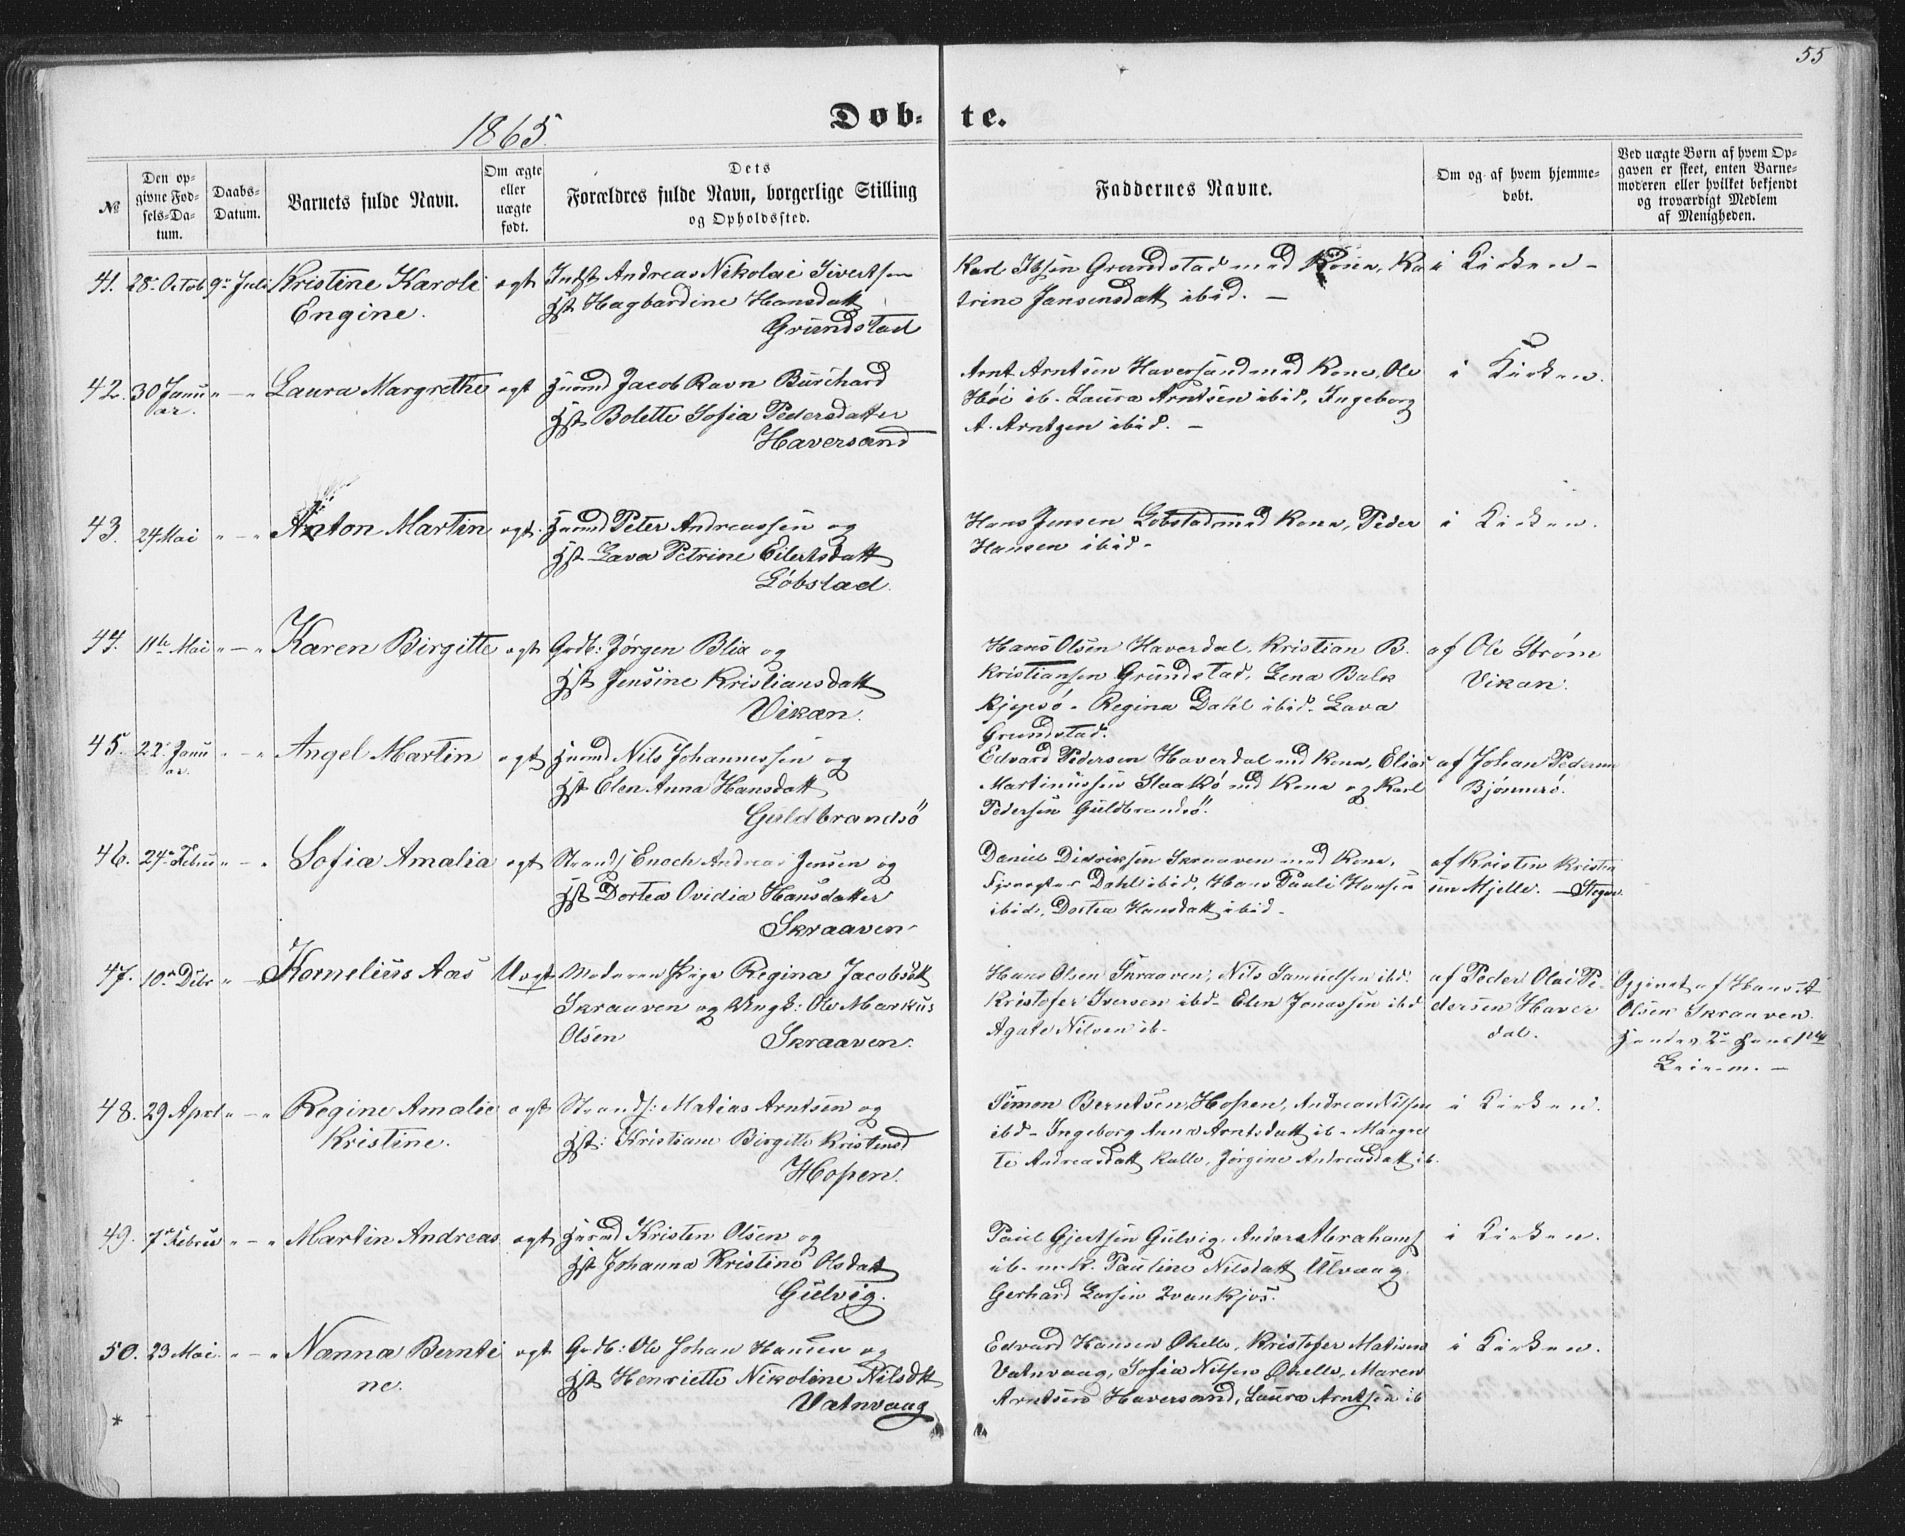 55
1865.
Døb-te.
№
Den opgivne Fødsels-Datum.
Daabs-Datum.
Barnets fulde Navn.
Om ægte eller uægte født.
Dets Forældres fulde Navn, borgerlige Stilling og Opholdssted.
Faddernes Navne.
Om og af hvem hjemmedøbt.
Ved uægte Børn af hvem Opgaven er skeet, enten Barnemoderen eller hvilket bekjendt og troværdigt Medlem af Menigheden.
41. 28 Octob 9 Juli Kristine Karoli ægt Indst Andreas Nikolai Sivertsen Karl Ibsen Grundstad med Kone, Ka i Kirken
Engine. Hst Hagbardine Hansdatt trine Jansensdatt ibid.
Grundstad
42. 30 Janu Laura Margrethe ægt Huusmd Jacob Ravn Burchard Arnt Arntsen Haversand med Kone, Ole i Kirken.
ar. Hst Bolette Sofia Pedersdatter Høi ib. Laura Arntsen ibid, Ingeborg
Haversand A. Arntzen ibid.
43. 24 Mai Anton Martin ægt. Huusmd Peter Andreassen og Hans Jensen Løbstad med Kone, Peder i Kirken.
Hst Lava Petrine Eilertsdatt Hansen ibid.
Løbstad.
44. 11te Mai Karen Birgitte ægt Grdb: Jørgen Blix og Hans Olsen Haverdal, Kristian B. af Ole Strøm
Hst Jensine Kristiansdatt Kristiansen Grundstad, Lena Balk Vikan.
Vikan. Kjepsø. Regina Dahl ibid. Lava
Grundstad.
45. 22 Janu Angel Martin ægt Huusmd Nils Johannessen og Edvard Pedersen Haverdal med Kone, Elias af Johan Pedersen
ar. Hst Elen Anna Hansdatt Martinussen med Kone og Karl
Guldbrandsö Pedersen Guldbrandsö.
46. 24 Febru Sofia Amalia ægt Strands Enoch Andreas Jensen og Daniel Didriksen Skraaven med Kone, af Kristen Kristen
Hst Dortea Ovidia Hansdatter Dahl ibid, Hans Pauli Hansen sen Mjelle. Stegen
Skraaven ibid, Dortea Hansdatt ibid.
47. 10 Debr Kornelius Aas Uægt Moderen Pige Regina Jacobsdtt Hans Olsen Skraaven, Nils Samuelsen ibd. af Peder Olai Pe- Opgivet af Hans A
Skraaven og Ungk: Ole Markus Kristofer Iversen ibd. Elen Jonassen ibd dersen Haver Olsen Skraaven.
Olsen Skraaven. Agate Nilsen ib. dal. 2 1ste
Leierm.
48. 29 April Regine Amalie ægt Strands: Matias Arntsen og Simon Berntsen, Hopen, Andreas Nilsen i Kirken.
Kristine. Hst: Kristiane Birgitte Kristensd ibd. Ingeborg Anna Arntsdatt ib. Margre
Hopen. te Andreasdatt, Jørgine Andreasdatt ib.
49. 7 Febru Martin Andreas ægt Huusmd Kristen Olsen og Paul Gjertsen Gulvig, Anders Abrahams i Kirken.
Hst Johanna Kristine Olsdatt ib. m. K. Pauline Nilsdatt Ulvaag.
Gulvig. Gerhard Larsen
50. 23 Mai Nanna Bernti ægt Grdb: Ole Johan Hansen og Edvard Hansen Øhelle, Kristofer Matisen i Kirken.
ne. Hst Henriette Nikoline Nilsdtt Vatnvaag, Sofia Nilsen Øhelle, Maren
Vatnvaag Arntsen Haversand, Laura Arntsen ib